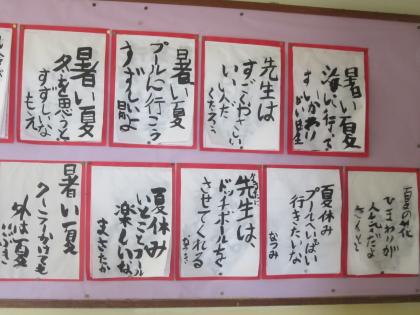 暑い夏
海に行って
すいかわり
先生は
すごくやさしい
いい人だ
暑い夏
プールに行こう
すずしいよ
暑い夏
冬を思って
すずしいな
もえ
夏の花
ひまわりが
人気だよ
さくいち
夏休み
プールへいっぱい
行きたいな
なつみ
先生は、
ドッチボールを
させてくれる
夏休み
いとことプール
楽しいな
まさたか
暑い夏
クーラーかけても
外は夏